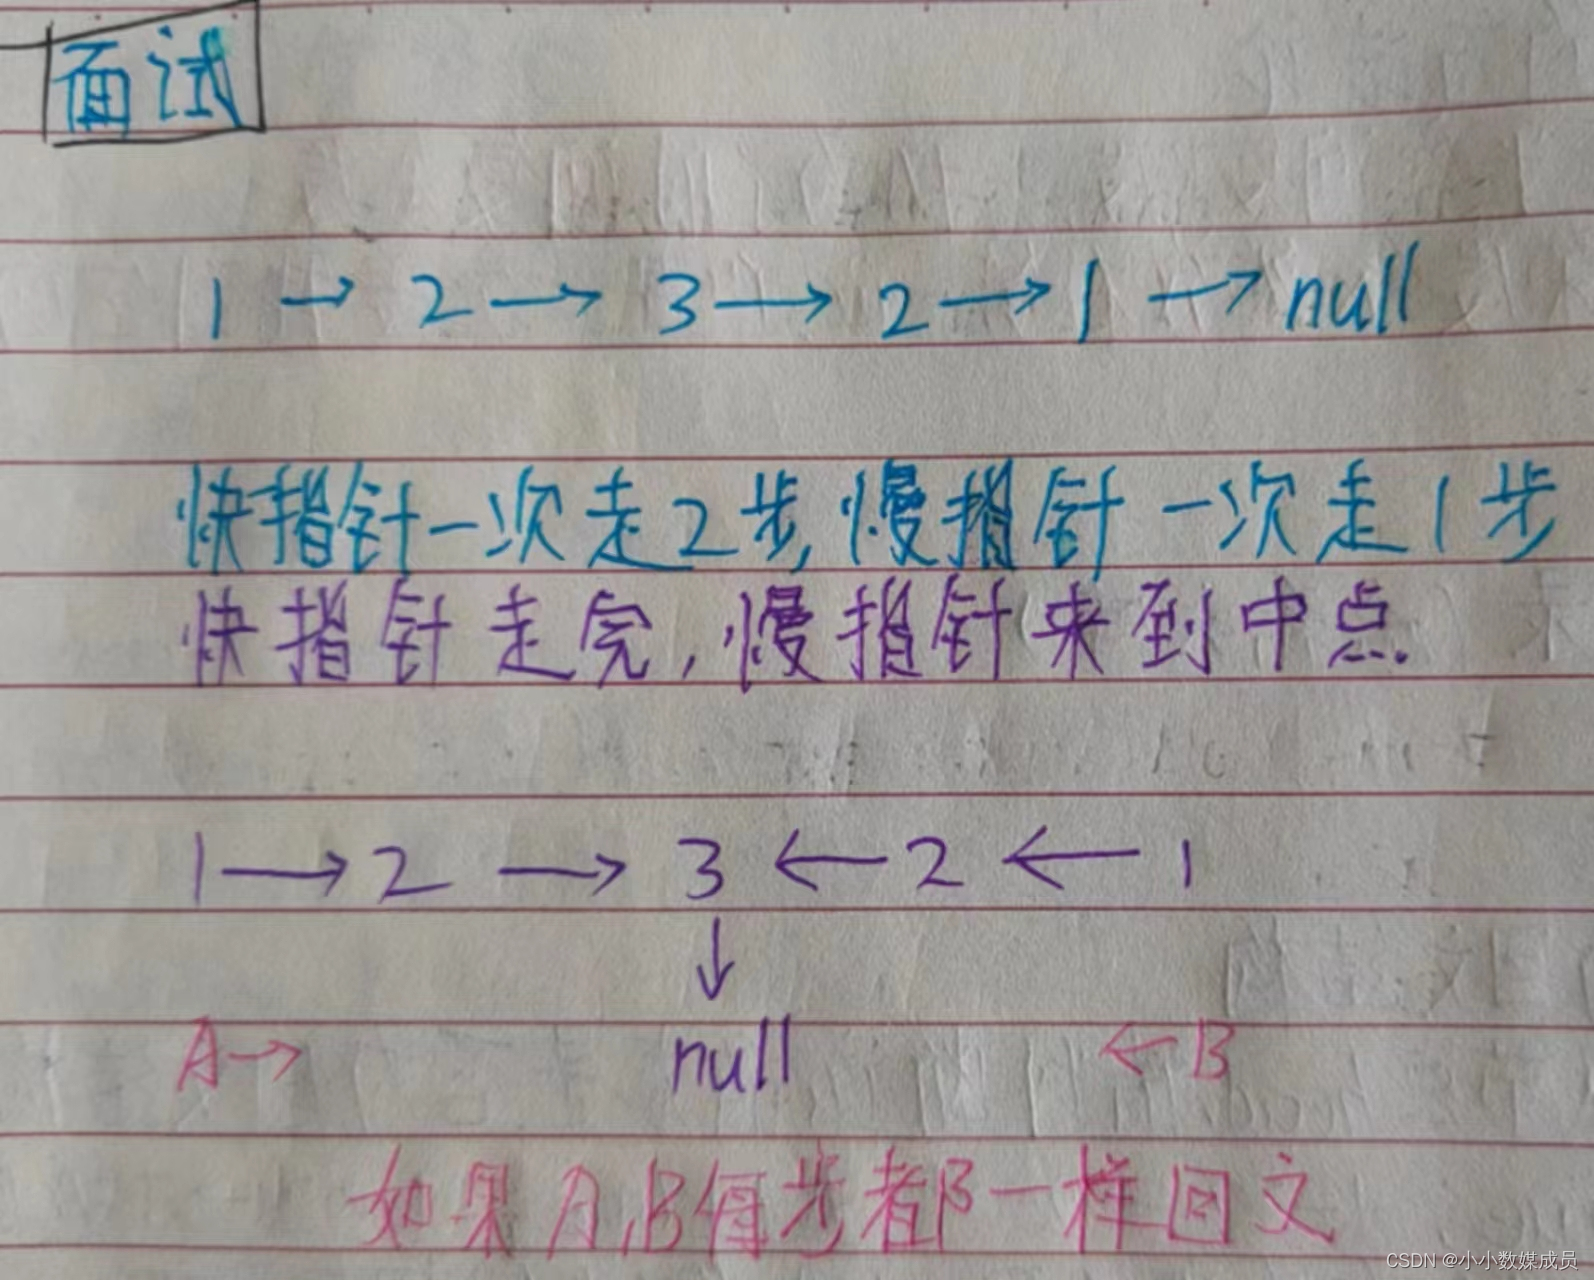 面试
1 → 2 → 3 → 2 → 1 → null
快指针一次走2步,慢指针一次走1步
快指针走完,慢指针来到中点.
1 → 2 → 3 ← 2 ← 1
↓
A→ null ←B
如果A,B每步都一样回文
CSDN @小小数媒成员